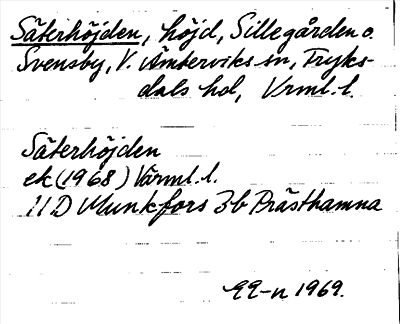 Säterhöjden, höjd, Sillegården o.
Svensby, V. Ämterviks sn, Fryks-
dals hd, Vrml. l.
Säterhöjden
ek (1968) Värml. l.
11D Munkfors 3b Prästhamna
1969.